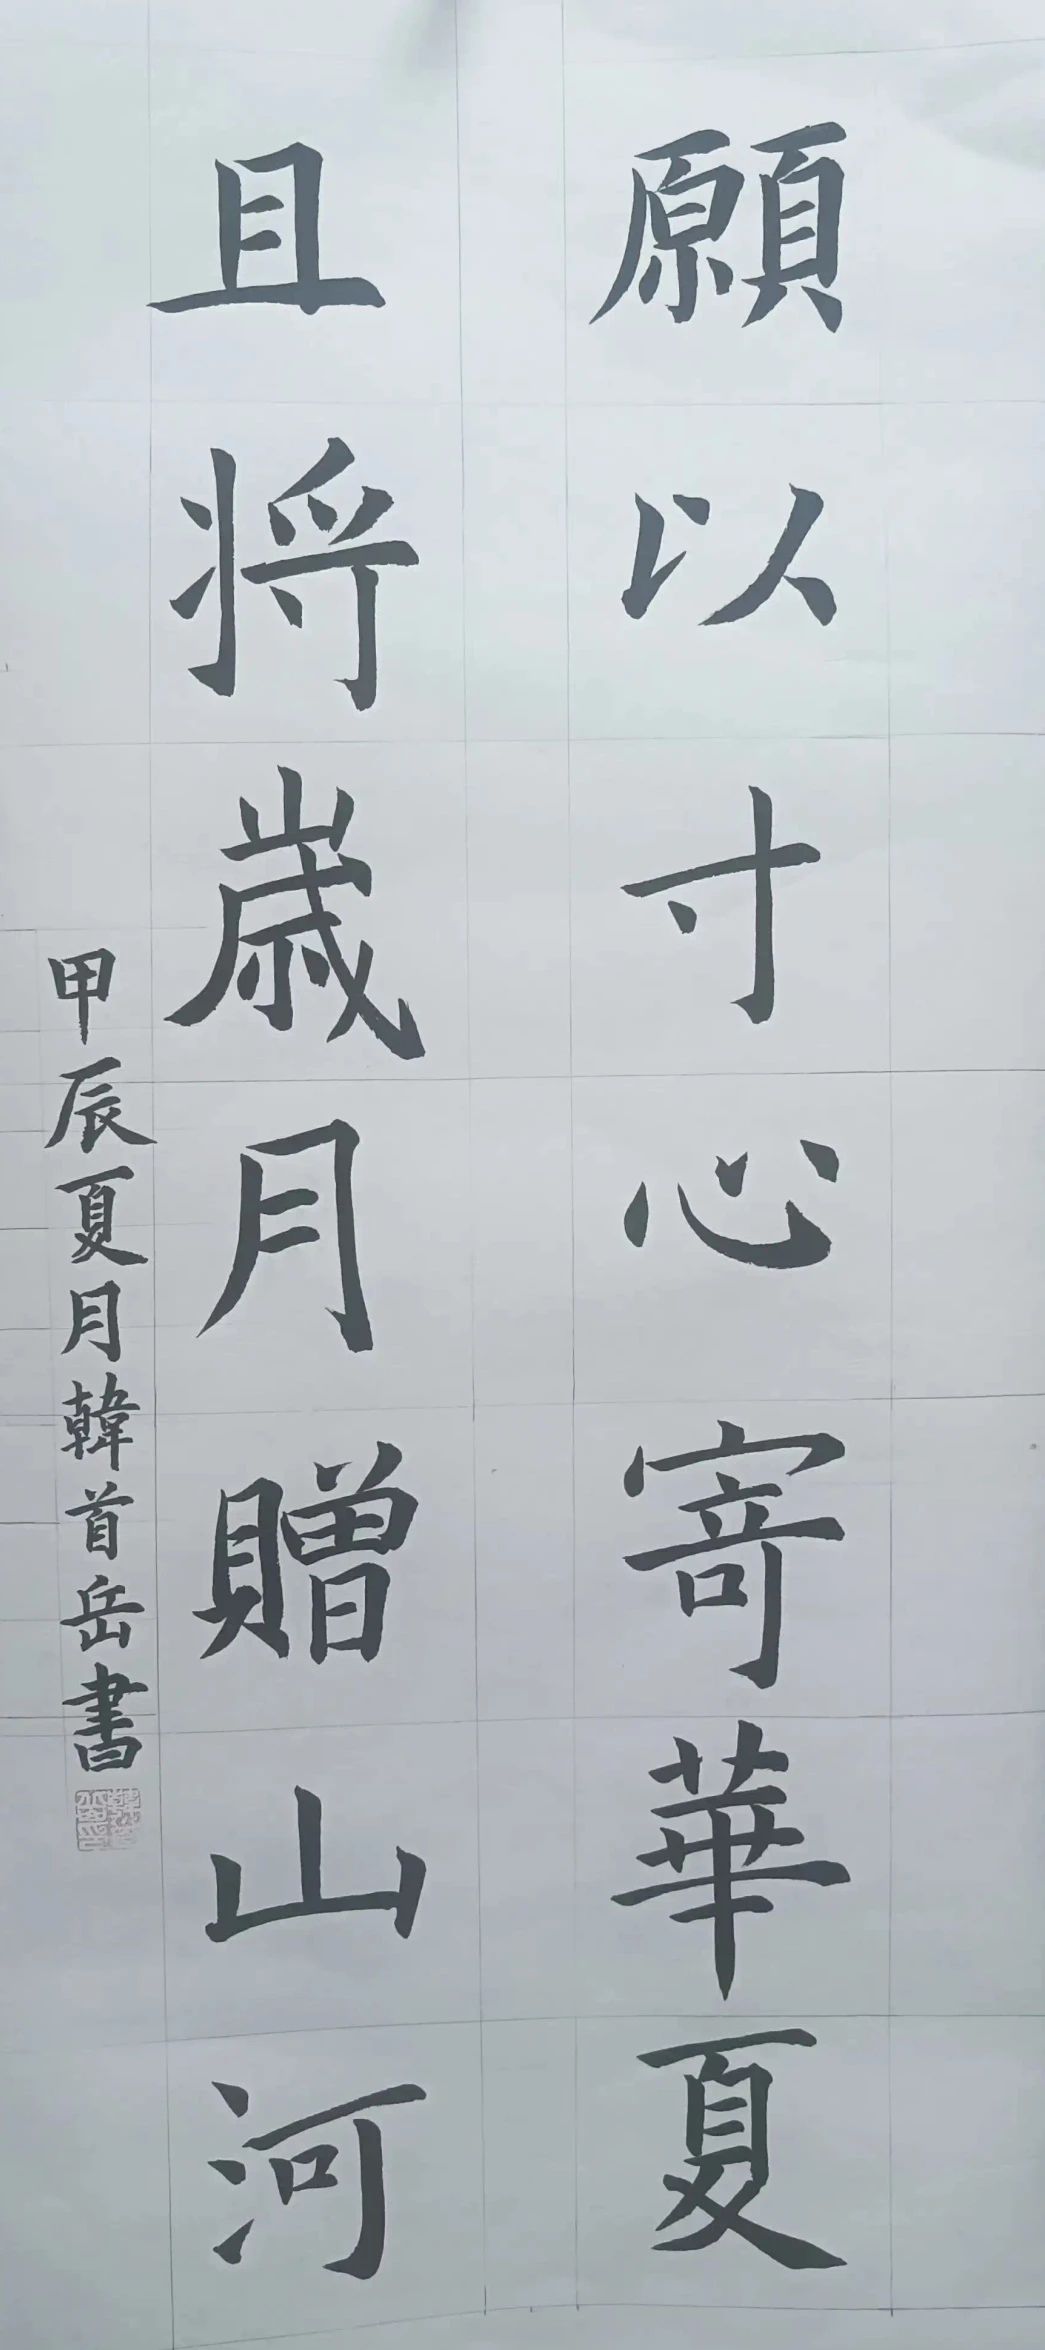 願以寸心寄華夏
且将歳月贈山河
甲辰夏月韓首岳書